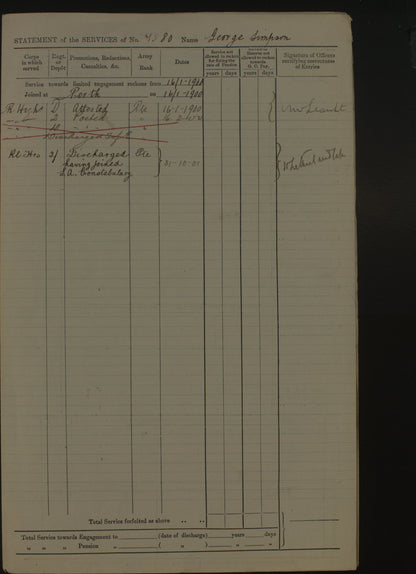 STATEMENT of the SERVICES of No. 4580 Name George Simpson
Corps in which served
Regt. or Depôt
Promotions, Reductions, Casualties, &c.
Army Rank
Dates
Service not allowed to reckon for fixing the rate of Pension
years days
Service not allowed to reckon towards G. C. Pay.
years days
Signature of Officers certifying correctness of Entries
Service towards limited engagement reckons from 16/1-1900
Joined at Perth on 16/1-1900
R Highrs D Attested Pte 16-1-1900
" 2 Posted "
" " "
Discharged
Rl Hrs 2/ Discharged Pte
having joined 31-10-01
S.A. Constabulary
Total Service forfeited as above .. ..
Total Service towards Engagement to (date of discharge) years days
" " " Pension " ( " ) " "